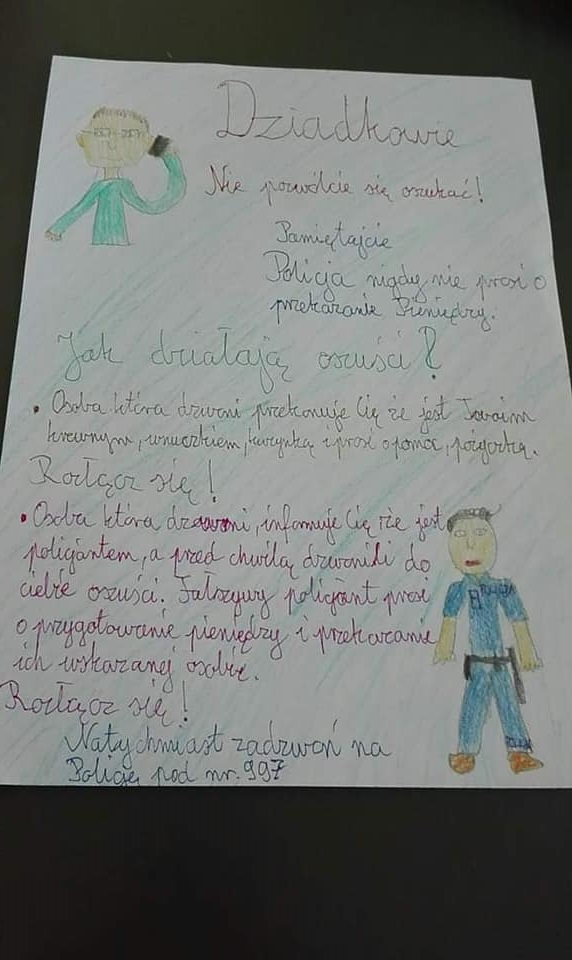 Dziadkowie
Nie pozwólcie się oszukać!
Pamiętajcie
Policja nigdy nie prosi o
przekazanie Pieniędzy.
Jak działają oszuści?
• Osoba która dzwoni przekonuje Cię że jest Twoim
krewnym, wnuczkiem, kuzynką i prosi o pomoc, pożyczkę.
Rozłącz się!
• Osoba która dzwoni, informuje Cię że jest
policjantem, a przed chwilą dzwonili do
ciebie oszuści. Fałszywy policjant prosi
o przygotowanie pieniędzy i przekazanie
ich wskazanej osobie.
Rozłącz się!
Natychmiast zadzwoń na
Policję pod nr. 997